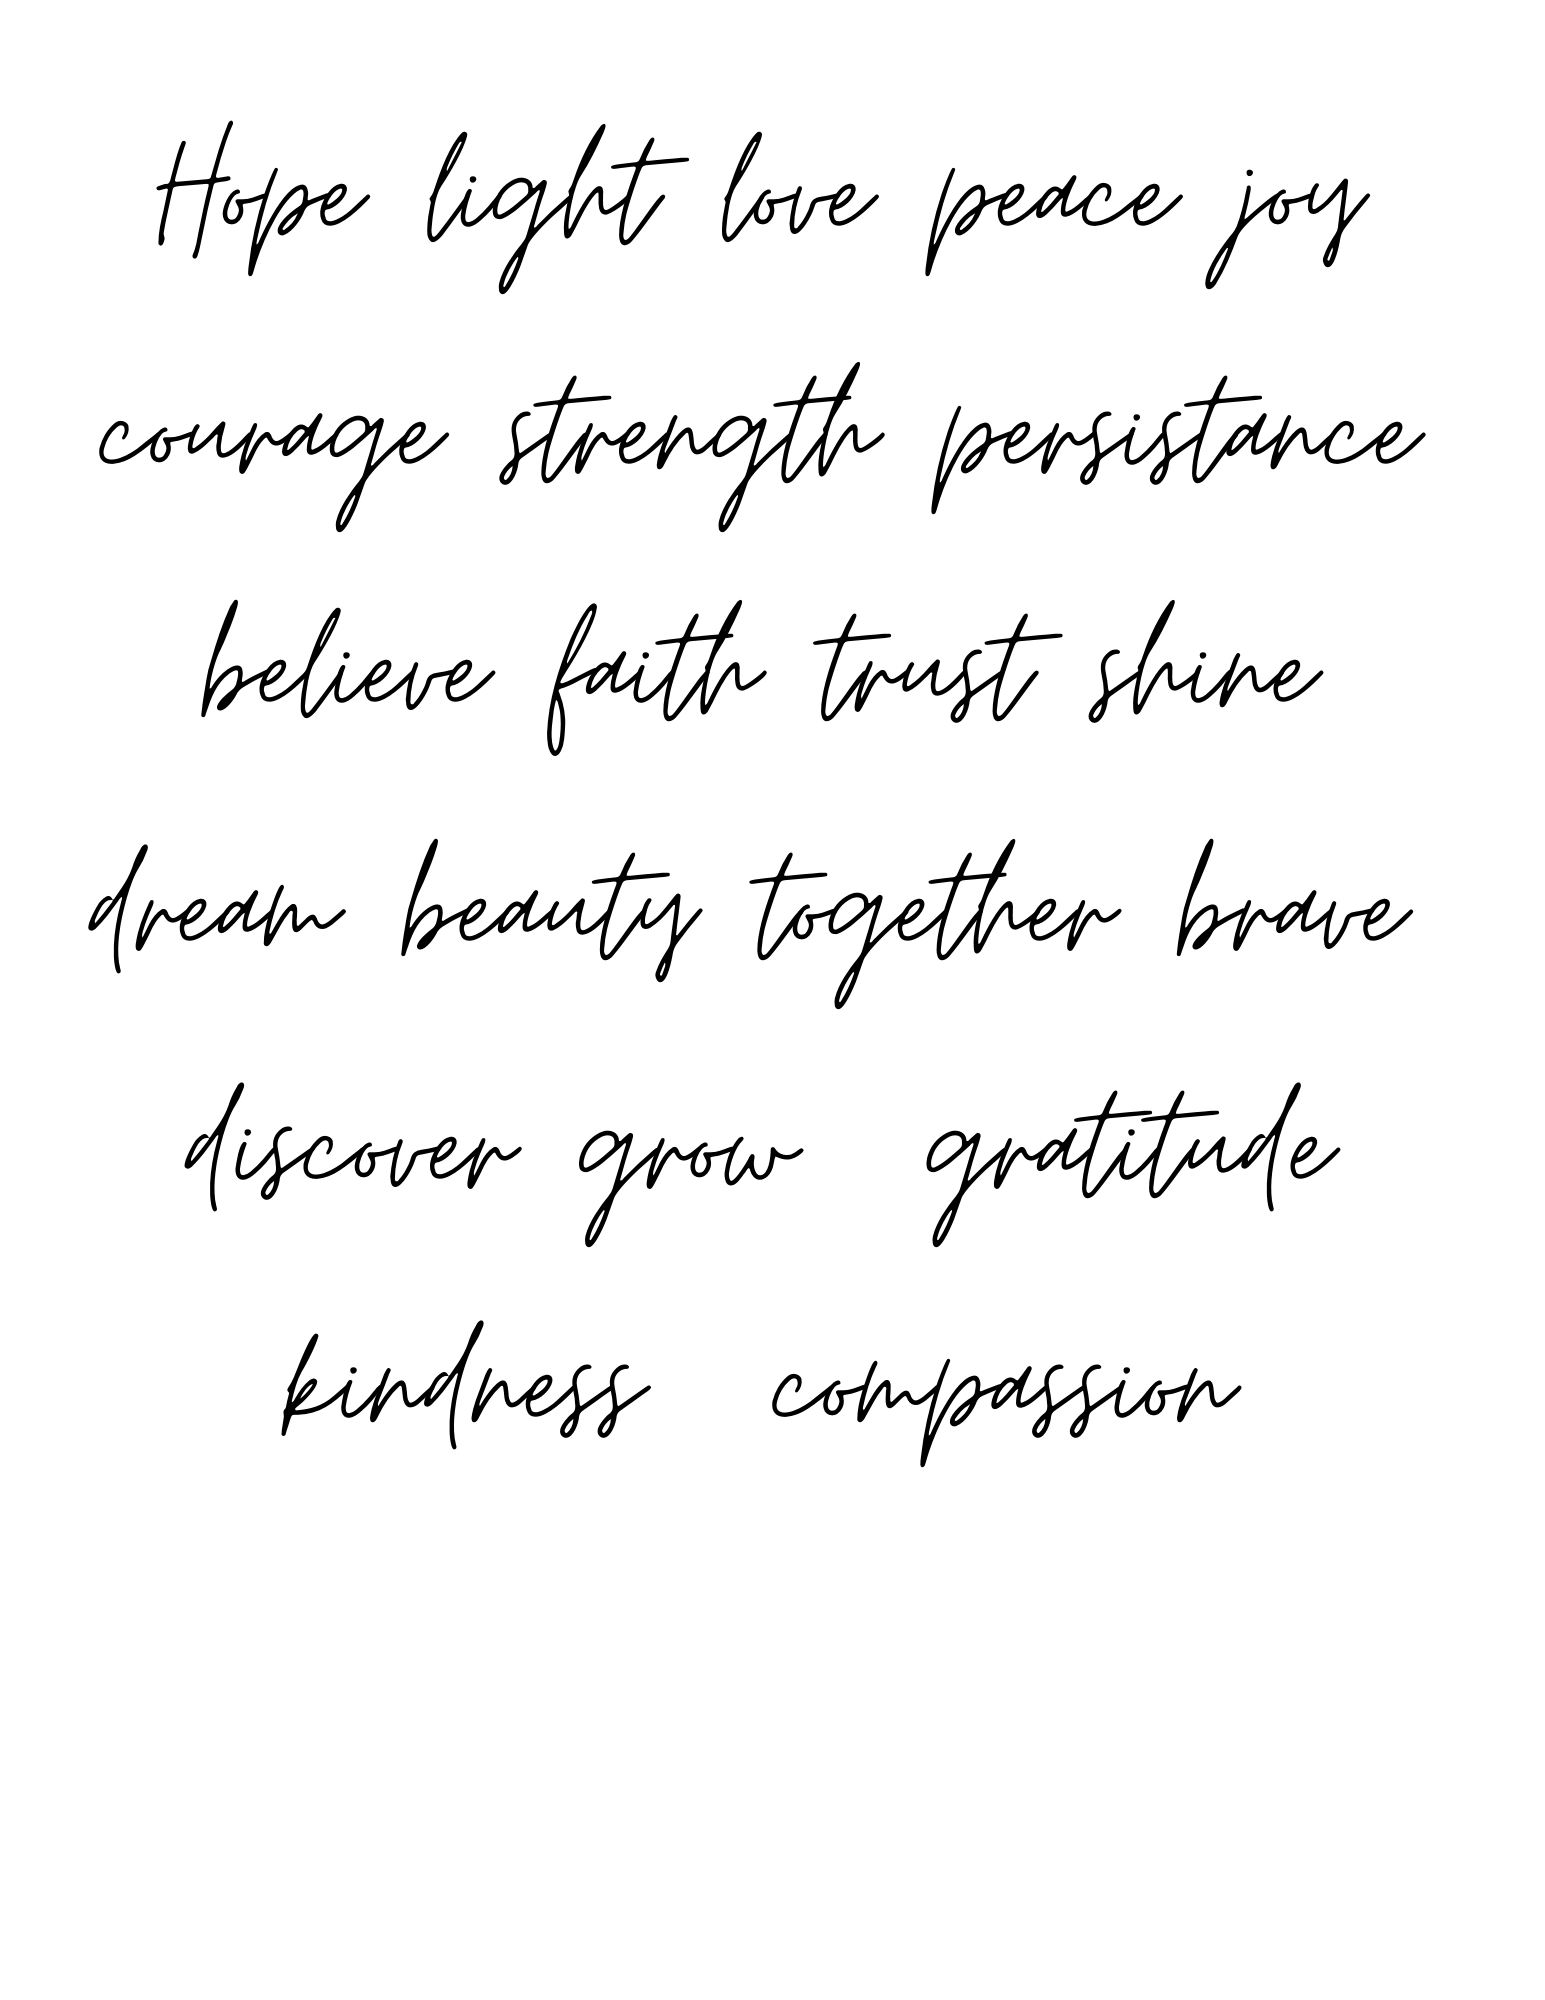 Hope light love peace joy
courage strength persistance
believe faith trust shine
dream beauty together brave
discover grow gratitude
kindness compassion